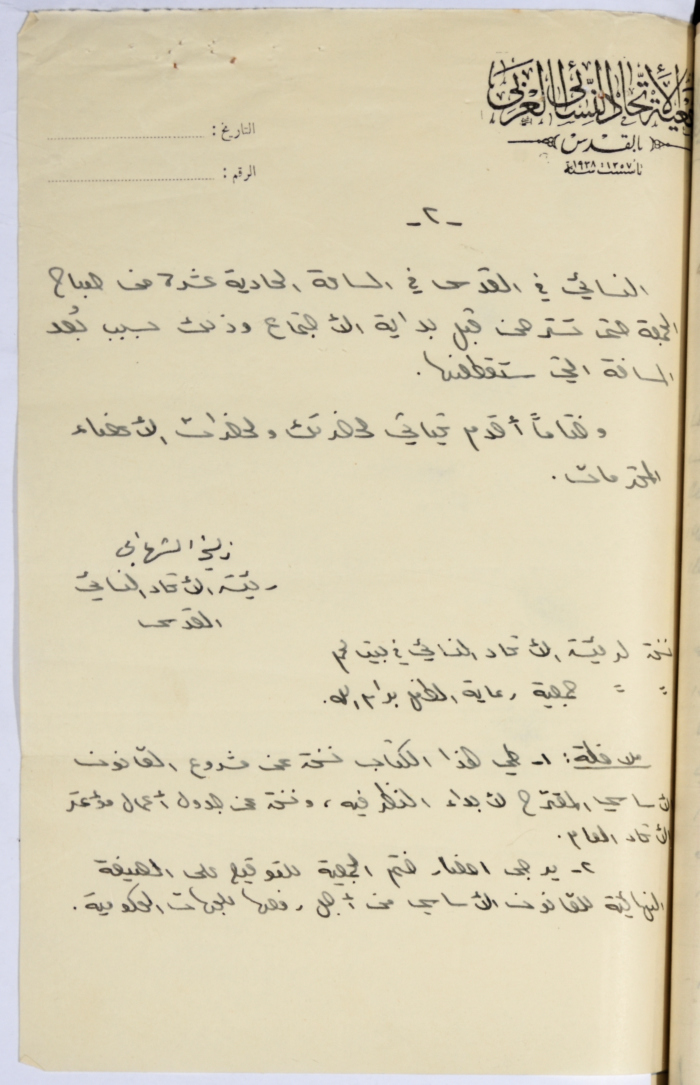 جمعية الاتحاد النسائي العربي
بالقدس
تأسست سنة ١٣٥٧ : ١٩٣٨
التاريخ :
الرقم :
-٢-
النسائي في القدس في الساعة الحادية عشرة من صباح
الجمعة حتى تسترحن قبل بداية الاجتماع وذلك بسبب بُعد
المسافة التي ستقطعنها.
وختاماً أقدم تحياتي لحضرتك ولحضرات الأعضاء
المحترمات.
زليخا الشهابي
رئيسة الاتحاد النسائي
القدس
نسخة لرئيسة الاتحاد النسائي في بيت لحم
" " جمعية رعاية الطفل برام الله.
ملاحظة: ١- طي هذا الكتاب نسخة عن مشروع القانون
الأساسي المقترح لابداء النظر فيه، ونسخة عن جدول أعمال مؤتمر
الاتحاد العام.
٢- يرجى احضار ختم الجمعية للتوقيع على الصيغة
النهائية للقانون الأساسي من أجل رفعها للجهات الحكومية.